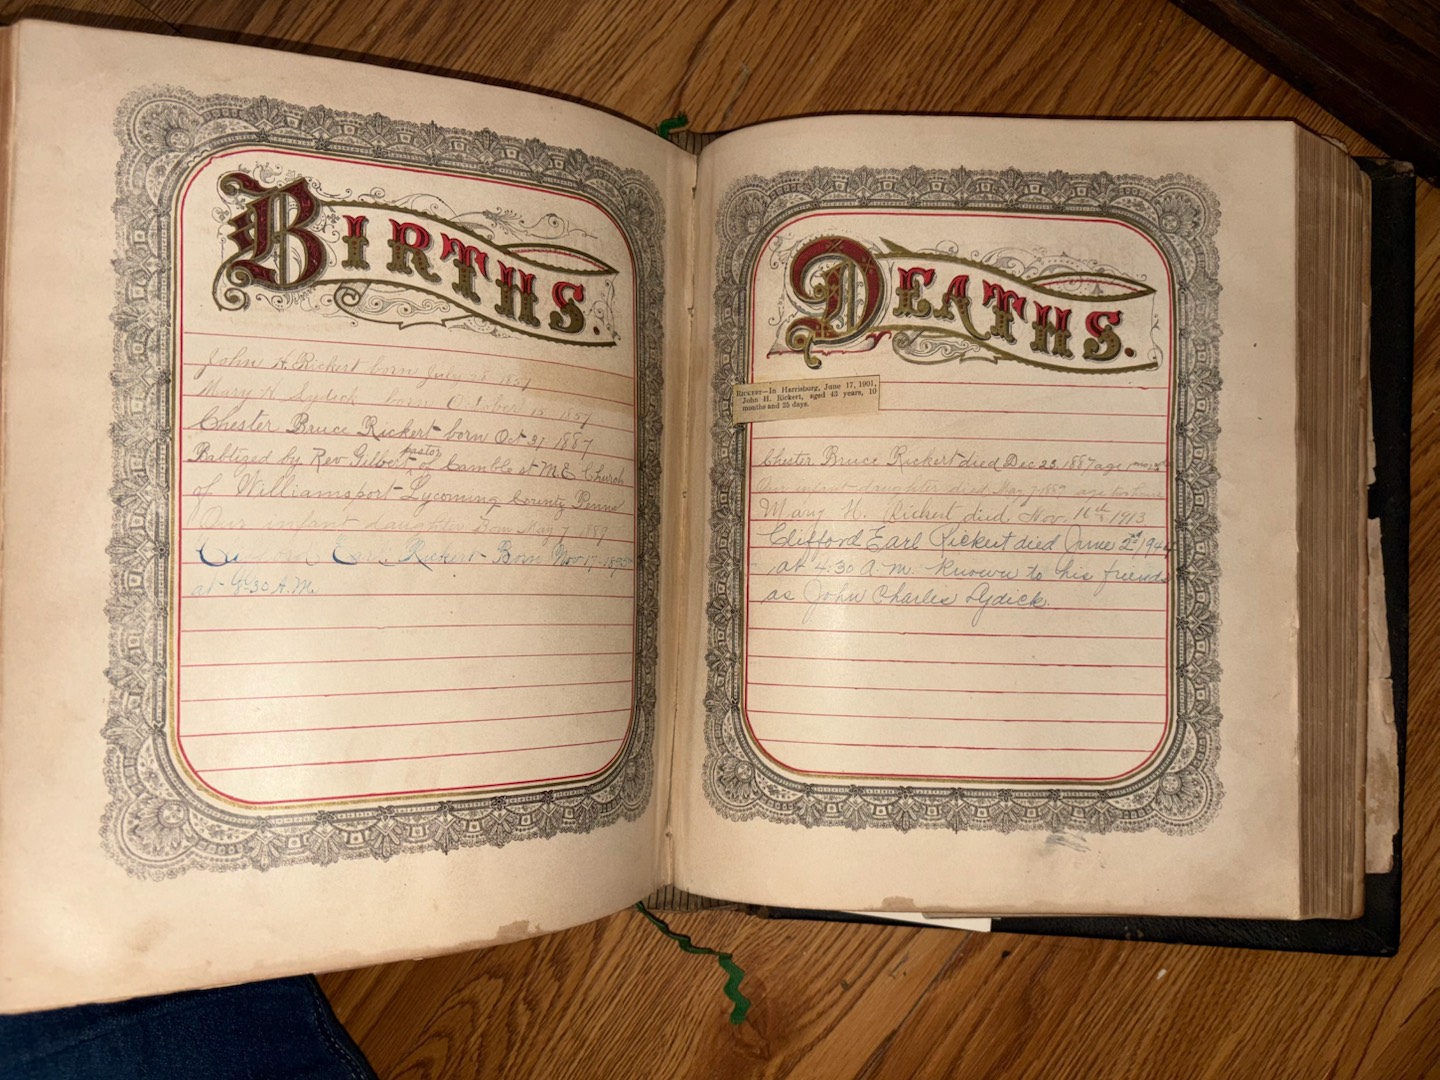 BIRTHS.
John H. Rickert born July 1857
Mary H Lydick born October 15 1857
Chester Bruce Rickert born Oct 21 1887
pastor
Babtized by Rev Gilbert of Camble st M.E. Church
of Williamsport Lycoming County Penna
Our infant daughter born May 7 189
Earl Rickert Born Nov 17
at 9-30 A.M.
DEATHS.
RICKERT—In Harrisburg, June 17, 1901,
John H. Rickert, aged 43 years, 10
months and 25 days.
Chester Bruce Rickert died Dec 23. 1887 age
Our infant daughter died May age two hours
Mary H. Rickert died, Nov. 11st 1913
Clifford Earl Rickert died June 2nd 194
at 4:30 A.M. known to his friends
as John Charles Lydick.